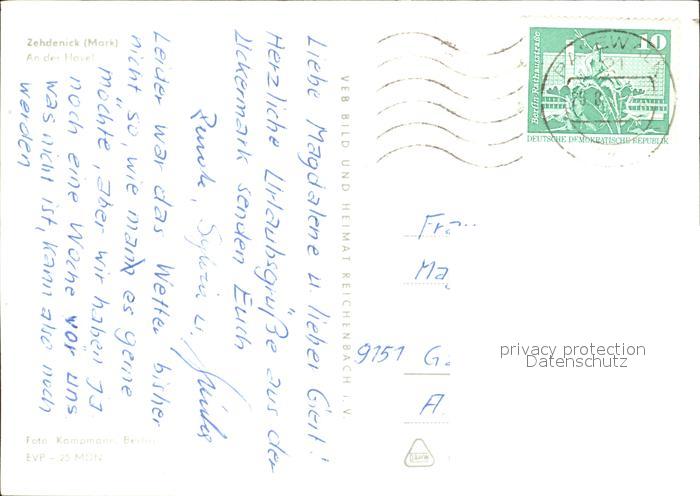 Zehdenick (Mark)
An der Havel
Liebe Magdalene u. lieber Gert!
Herzliche Urlaubsgrüße aus der
Uckermark senden Euch
Sylvia u.
Leider war das Wetter bisher
nicht so, wie man es gerne
möchte, aber wir haben ja
noch eine Woche vor uns.
was nicht ist, kann also noch
werden
Foto: Kampmann, Berlin
EVP -,25 MDN
VEB BILD UND HEIMAT REICHENBACH I. V.
Berlin-Rathausstraße
10
DEUTSCHE DEMOKRATISCHE REPUBLIK
Fra
Ma
9151 G
A
privacy protection
Datenschutz